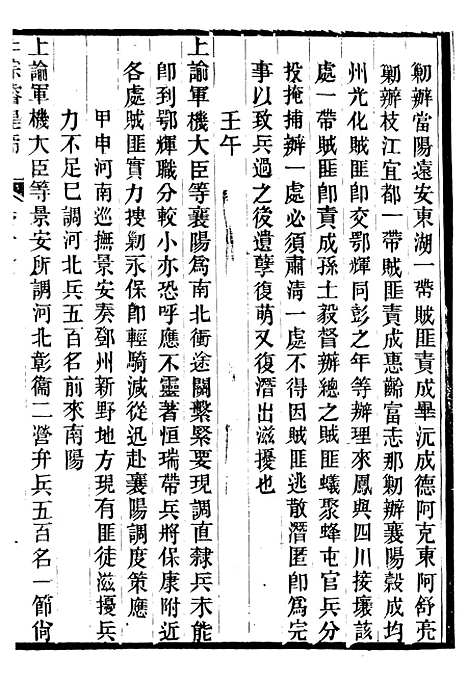 剿辦當陽遠安東湖一帶賊匪責成畢沅成德阿克東阿舒亮
剿辦枝江宜都一帶賊匪責成惠齡富志那剿辦襄陽穀成均
州光化賊匪卽交鄂輝同彭之年等辦理來鳳與四川接壤該
處一帶賊匪卽責成孫士毅督辦總之賊匪蟻聚蜂屯官兵分
投掩捕辦一處必須肅清一處不得因賊匪逃散潛匿卽爲完
事以致兵過之後遺孽復萌又復潛出滋擾也
壬午
上諭軍機大臣等襄陽爲南北衝途關繫緊要現調直隸兵未能
卽到鄂輝職分較小亦恐呼應不靈著恒瑞帶兵將保康附近
各處賊匪實力搜剿永保卽輕騎減從迅赴襄陽調度策應
甲申河南巡撫景安奏鄧州新野地方現有匪徒滋擾兵
力不足巳調河北兵五百名前來南陽
上諭軍機大臣等景安所調河北彰衞二營弁兵五百名一節尙